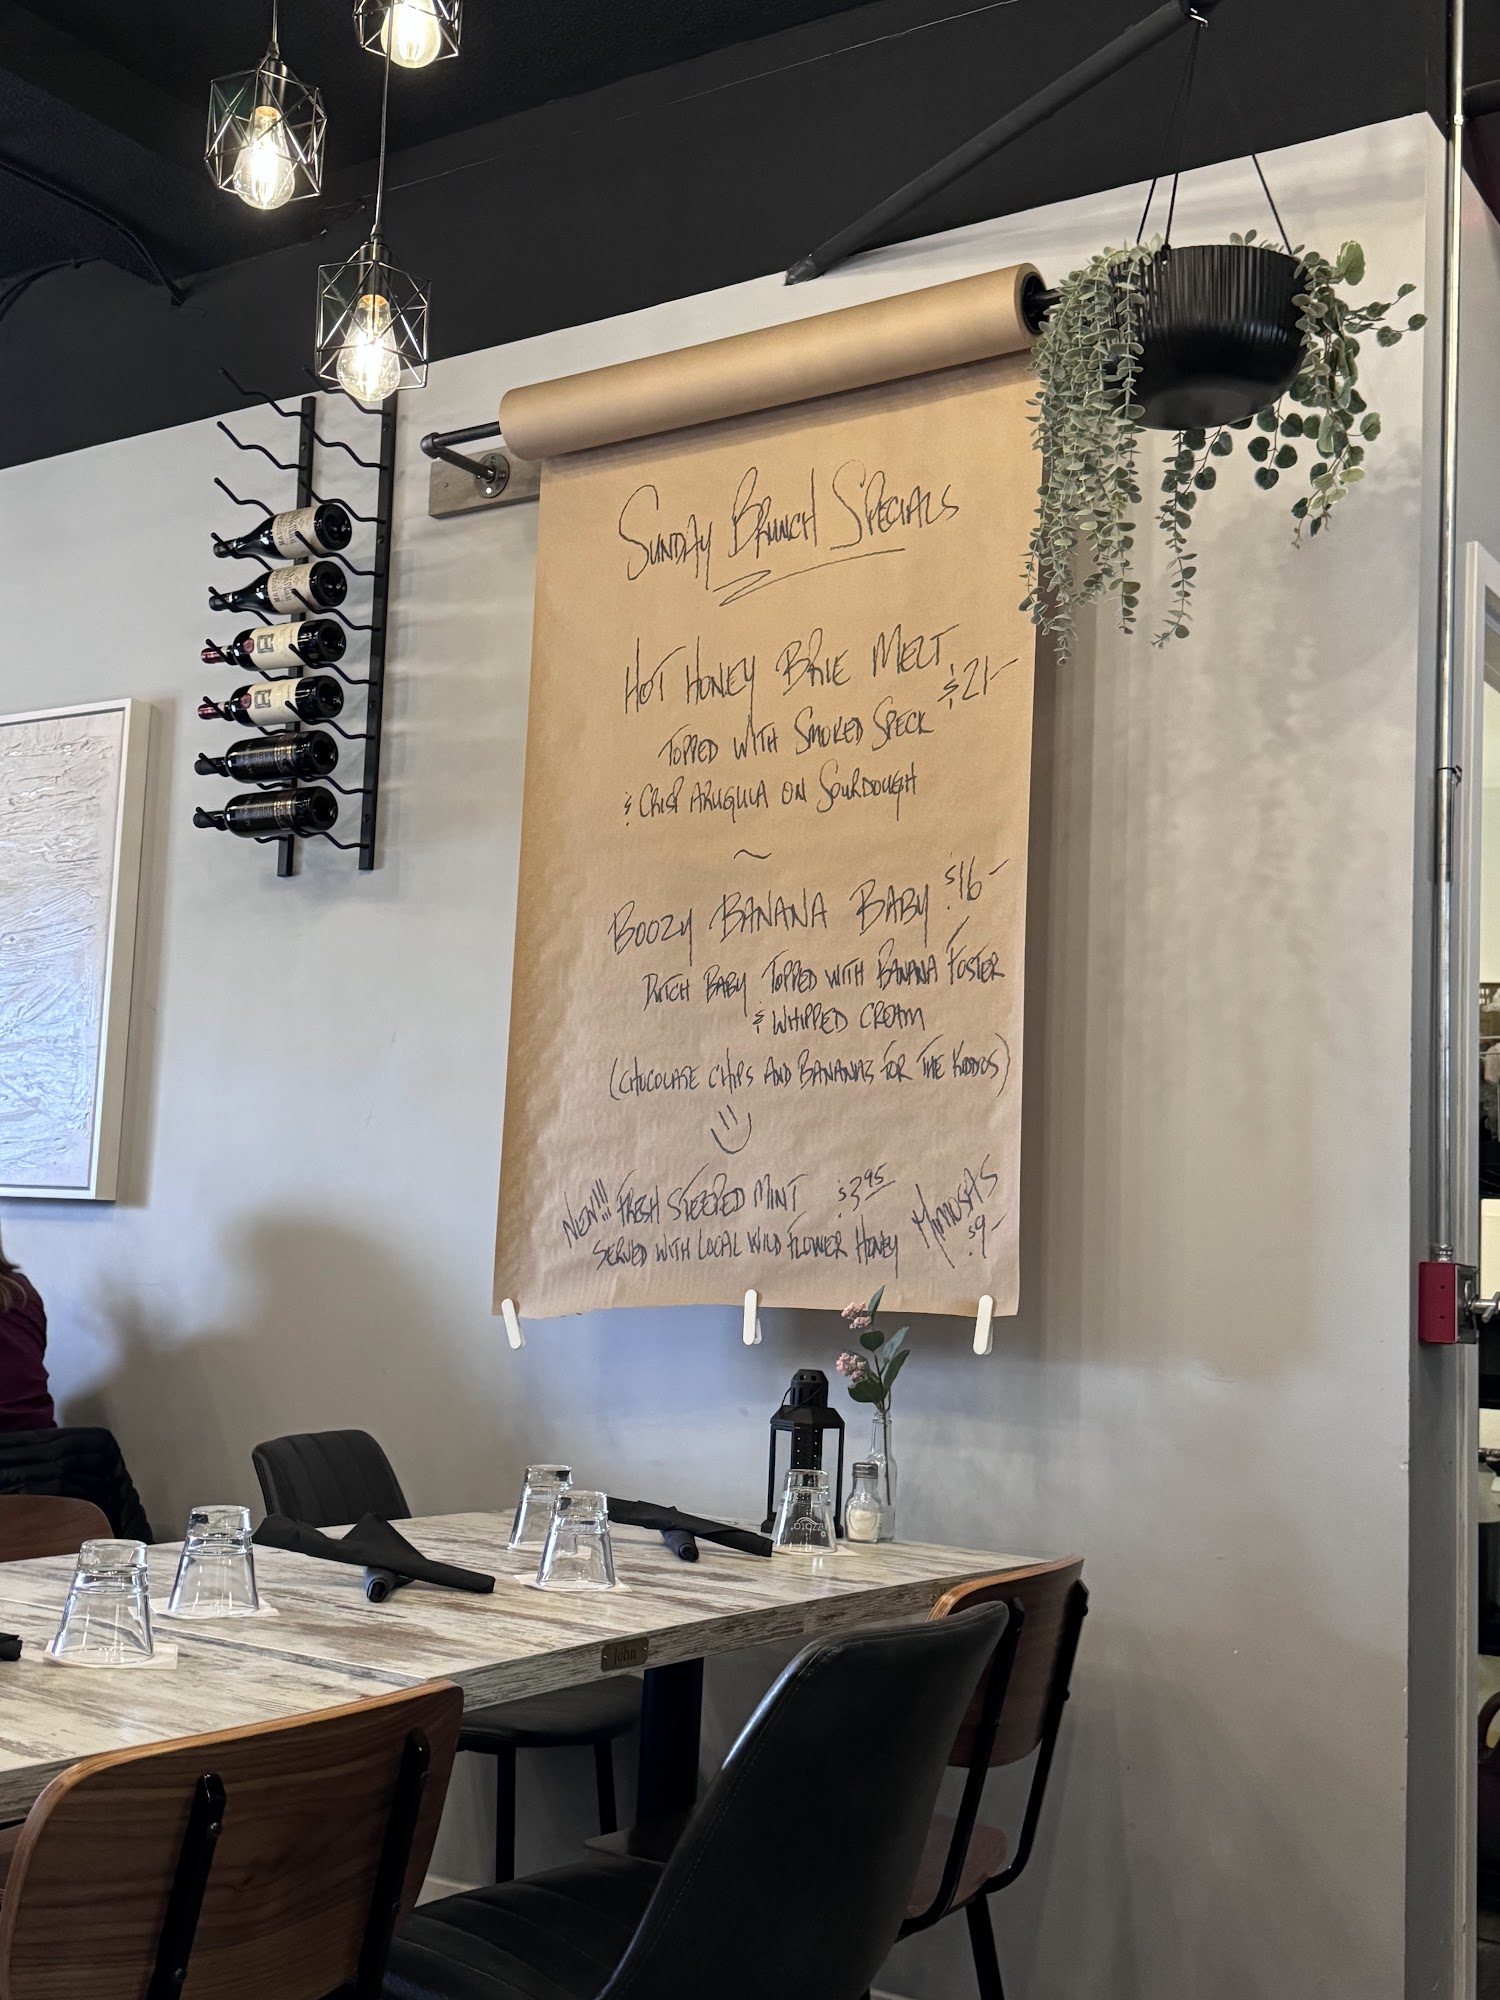 SUNDAY BRUNCH SPECIALS
HOT HONEY BRIE MELT
$21-
TOPPED WITH SMOKED SPECK
& CRISP ARUGULA ON SOURDOUGH
~
BOOZY BANANA BABY $16-
DUTCH BABY TOPPED WITH BANANA FOSTER
& WHIPPED CREAM
(CHOCOLATE CHIPS AND BANANAS FOR THE KIDDOS)
NEW!!! FRESH STEEPED MINT $3.95
SERVED WITH LOCAL WILD FLOWER HONEY
MIMOSAS
$9-
John